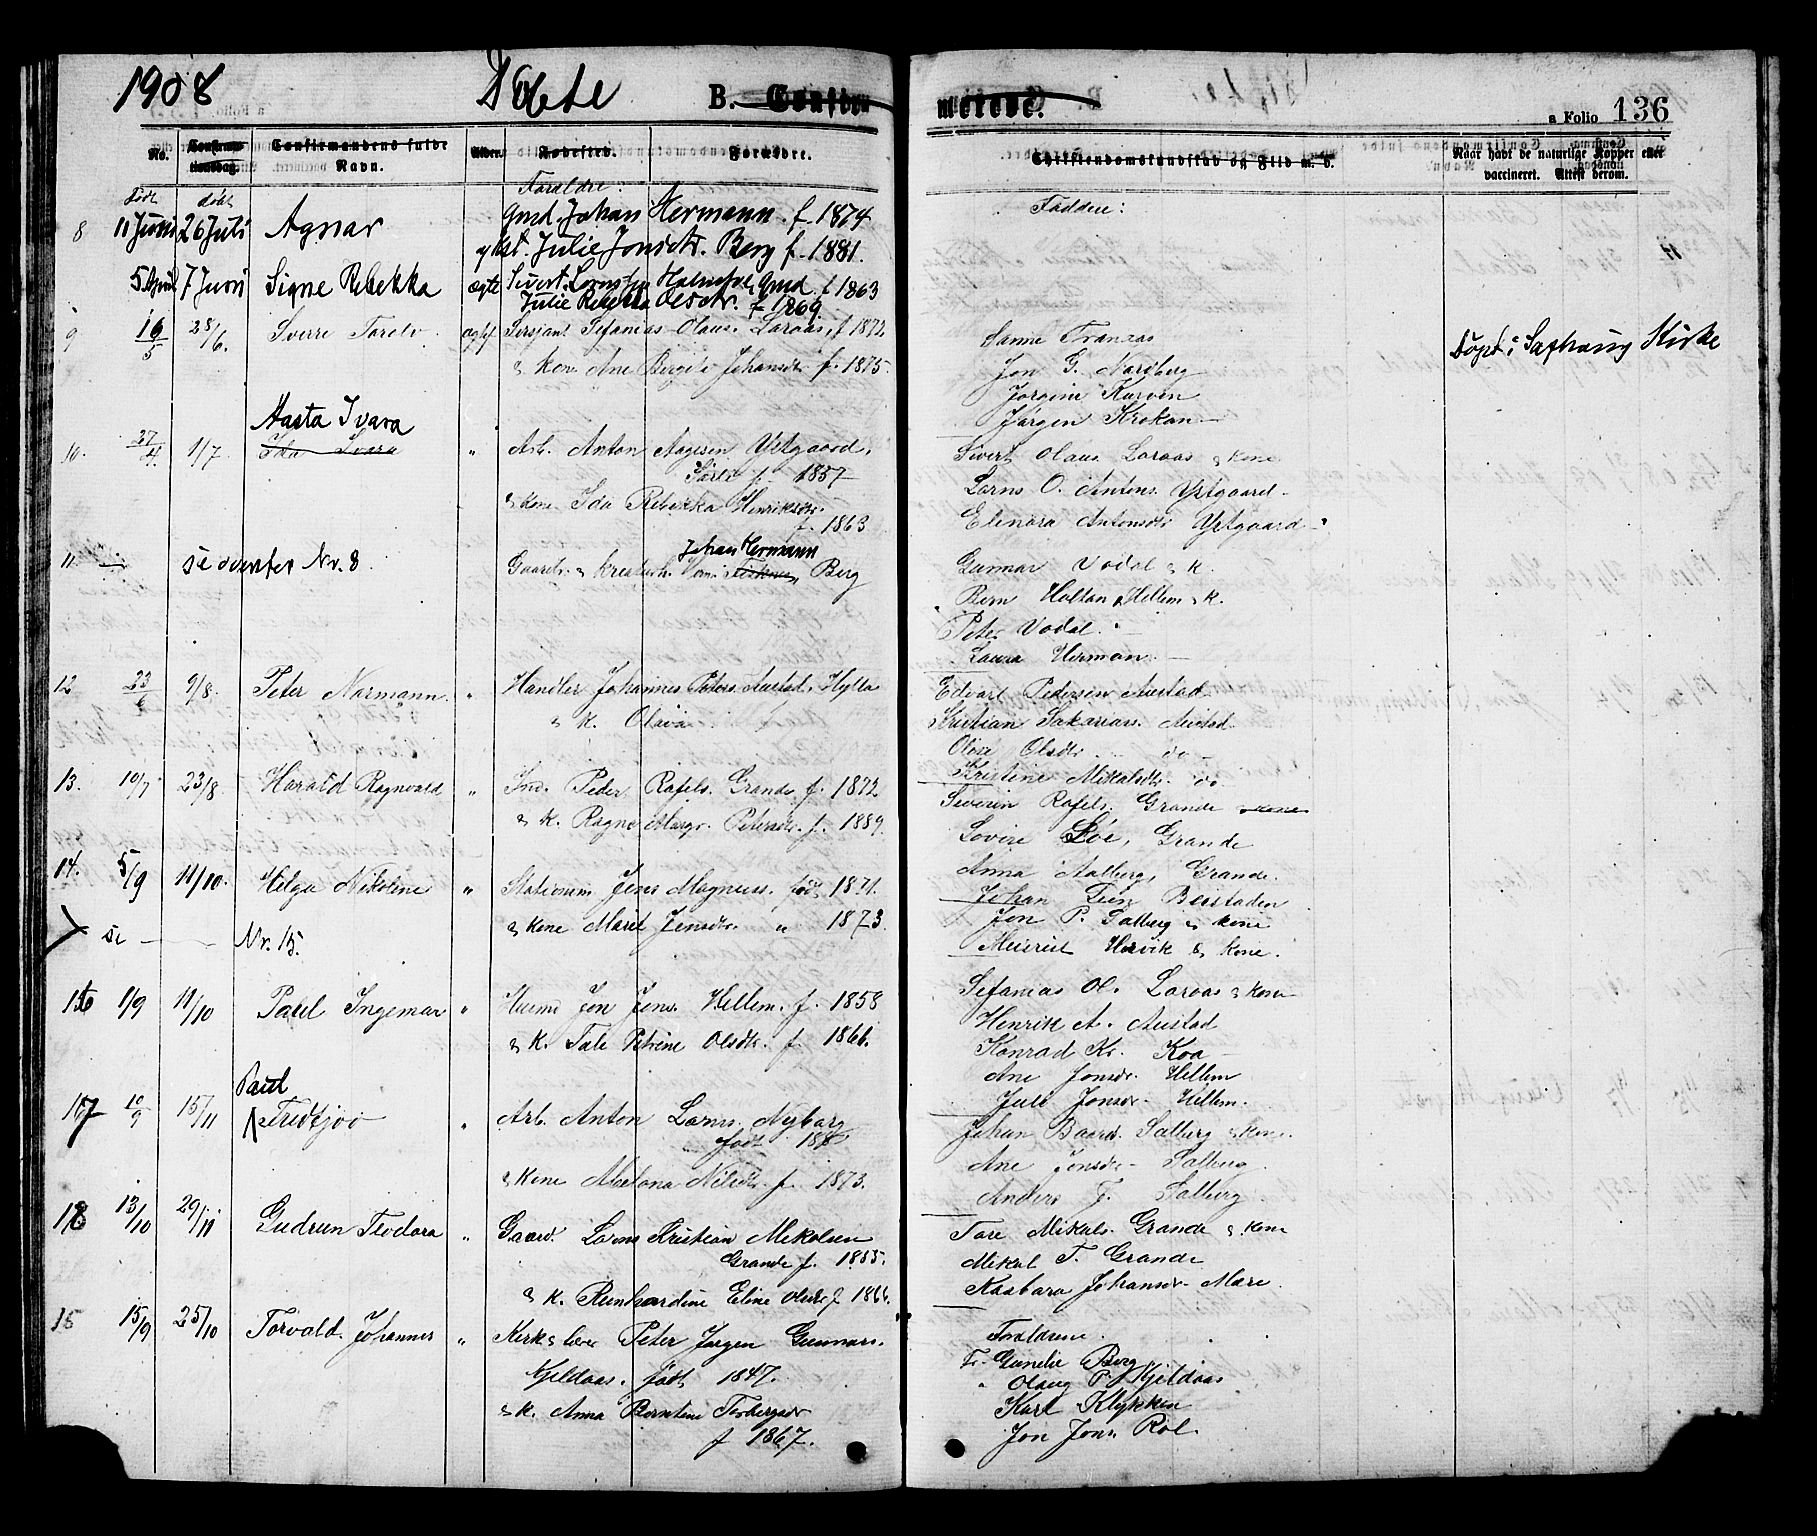 1908 Døbte B. Confirmerede. a Folio 136
No. Confirmationsdag. Confirmandens fulde Navn. Alder. Fødested. Forældre. Christendomskundskab og Flid m. v. Naar havt de naturlige Kopper eller vaccineret. Attest derom.
Født døbt Forældre: Faddere:
8 11 Juni 26 Juli Agnar Gmd. Johan Hermann f 1874
Julie Jonsdtr. Berg f. 1881.
5 April 7 Juni Signe Rebekka ægte Sivert Lornts Gmd. f 1863
Julie Rebekka Olsdtr. f 1869
9 16/5 28/6. Sverre Torelv Sersjant Sefanias Olaus. Laraas, f 1872
& Kone Ane Bergite Johansdtr f. 1875
Sanne Franzas
Jon G. Nordberg
Jorgine Kurven
Jørgen Krokan
Døpt i Sakshaug Kirke
Aasta Ivara
10. 27/4. 1/7. Ida Ivara " Arb. Anton Aagesen Ystgaard,
f. 1857
& Kone Ida Rebekka Henriksdtr.
f. 1863
Sivert Olaus Laraas & Kone
Lorns O. Antons. Ystgaard
Elenora Antonsdtr Ystgaard
11. se ovenfor Nr. 8 Johan Hermann
Gaardbr. & Berg
Gunnar Vodal & K.
Bern Holtan Hellem & K.
Peter Vodal
Laura Herman
12 23/6 9/8. Peter Normann " Handler Johannes Peters. Austad, Hylla
& K. Olava
Edvart Pedersen Austad
Kristian Sakarias. Austad
Oline Olsdtr. do
Kristine Mikalsdtr. do.
13. 10/7 23/8. Harald Ragnvald " Ind. Peder Rafels. Grande f. 1872
& K. Ragna Margr. Petersdtr. f. 1889.
Severin Rafels. Grande & Kone
Lovise Loe, Grande
Anna Aalberg, Grande.
14. 5/9 11/10. Helga Nikoline " Stationsm. Jens Magnuss. født 1871.
& Kone Marit Jensdtr. " 1873.
Johan Beistaden
Jon P. Salberg & Kone
Meierist Hervik & Kone.
se — Nr. 15.
16 1/9 11/10 Paul Ingemar " Husmd Jon Jens. Hellem. f. 1858
& K. Tale Petrine Olsdtr. f. 1861.
Sefanias Ol. Laraas & Kone
Henrik A. Austad
Konrad Kr. Koa
Ane Jonsdr. Hellem
Jule Jonsdr. Hellem.
Paul
17 10/9 15/11 Fredtjov " Arb. Anton Lorns. Nyborg
født
& Kone Abelona Nilsdtr. f. 1873.
Johan Baards. Salberg & Kone.
Ane Jonsdtr. Salberg
Anders J. Salberg.
18 13/10 29/11 Gudrun Teodora " Gaard. Lorns Kristian Mikalsen
Grande f. 1855.
& K. Reinhardine Eline Olsdr f 1866.
Tore Mikals. Grande & Kone
Mikal T. Grande
Kasbara Johansdr. Mære.
15 15/9 25/10 Torvald Johannes " Kirkes. Peter Jørgen Gunnars.
Kjeldaas. født 1847.
& K. Anna Berntine Torbergsdr
f 1867.
Forældrene.
Fr. Gunelie Berg
" Olaug P. Kjeldaas
Karl Klykken
Jon Jons. Rol.